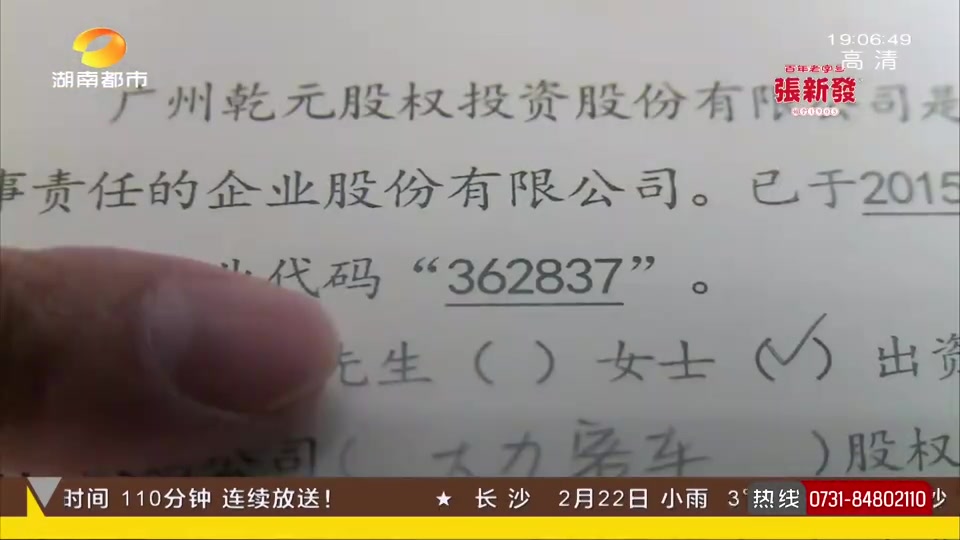 湖南都市
19:06:49
高清
百年老字号
張新發
广州乾元股权投资股份有限公司是
事责任的企业股份有限公司。已于2015
代码“362837”。
先生（ ）女士（✓）出资
公司（ 古力客车 ）股权
时间 110分钟 连续放送！ ★ 长沙 2月22日 小雨 3° 热线 0731-84802110 沙